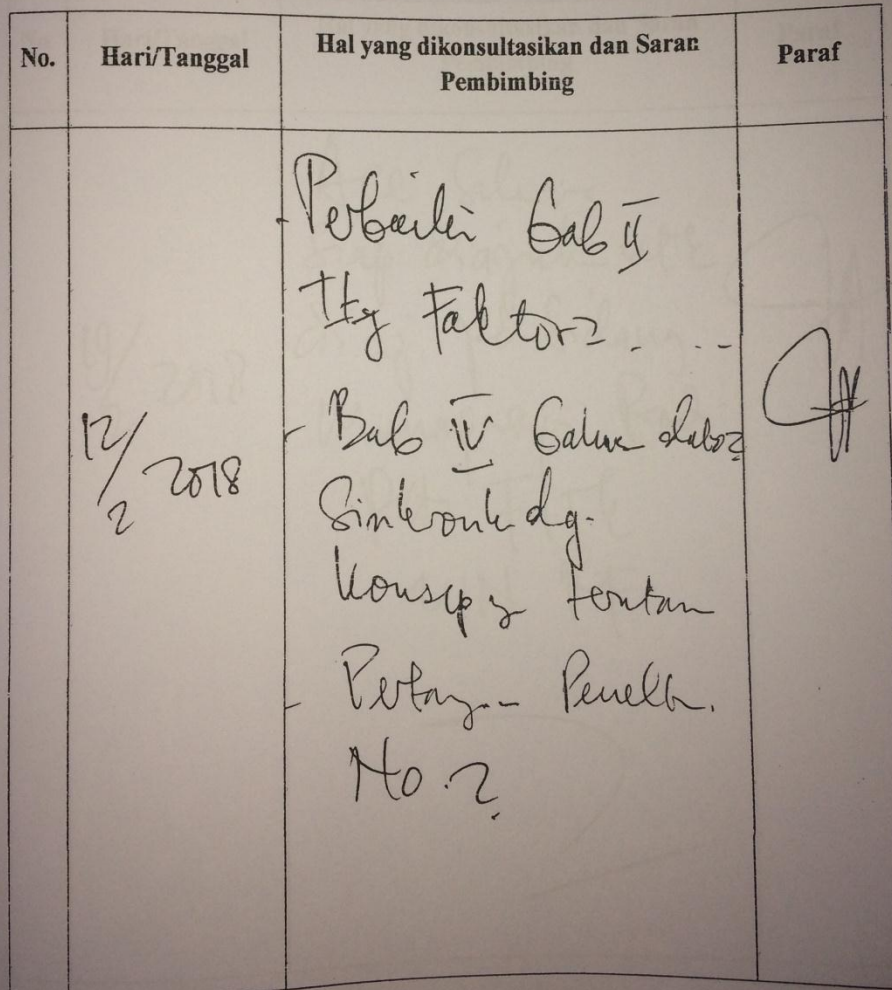 No.
Hari/Tanggal
Hal yang dikonsultasikan dan Saran
Pembimbing
Paraf
- Perbaiki bab II
ttg Faktor2 . ...
12/2 2018
- Bab IV
Sinkronk dg.
Konsep yg
- Pertany-- Penelit.
No. 2.